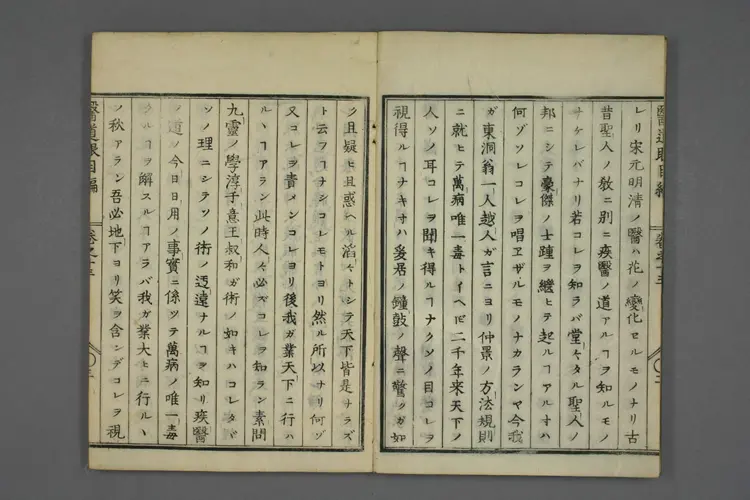 レリ宋元明清ノ醫ハ花ノ變化セルモノナリ古
昔聖人ノ敎ニ別ニ疾醫ノ道アルヿヲ知ルモノ
ナケレバナリ若コレヲ知ラバ堂々タル聖人ノ
邦ニシテ豪傑ノ士踵ヲ纔ヒテ起ルヿアルオハ
何ゾソレコレヲ唱ヱザルモノナカランヤ今我
ガ東洞翁一人越人ガ言ニヨリ仲景ノ方法規則
ニ就ヒテ萬病唯一毒トイヘ𪜈二千年来天下ノ
人ソノ耳コレヲ聞キ得ルヿナクソノ目コレヲ
視得ルヿナキオハ爰居ノ鐘鼓ノ聲ニ驚クガ如
醫道眼目編
卷之十三
ク且疑ヒ且惑ヘル滔々トシテ天下皆是ナラズ
ト云フヿナシコレモトヨリ然ル所以ナリ何ゾ
又コレヲ責メンコレヨリ後我ガ業天下ニ行ハ
ルヽヿアラン此時人々必ズコレヲ知ラン素問
九靈ノ學淳于意王叔和ガ術ノ如キハコレタヾ
ソノ理ニシテソノ術ノ迂遠ナルヿヲ知リ疾醫
ノ道ノ今日日用ノ事實ニ係ツテ萬病ノ唯一毒
タルヿヲ解スルヿアラバ我ガ業大ヒニ行ルヽ
ノ秋アラン吾必地下ヨリ笑ヲ含ンデコレヲ視
醫道眼目編
卷之十三